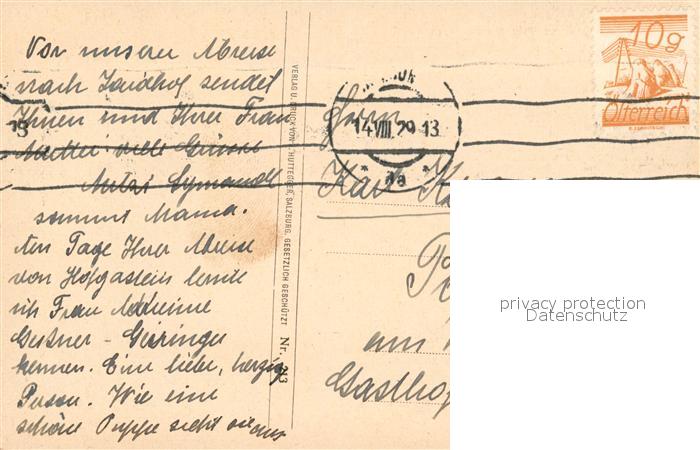 Vor unserer Abreise
nach sendet
Ihnen und Ihrer Frau
Mutter viele Grüsse
Mitzi
sammt Mama.
Am Tage Ihrer Abreise
von Hofgastein lernte
ich Frau
Gessner - Geiringer
kennen. Eine liebe, herzige
Person. Wie eine
schöne Puppe sieht sie aus
VERLAG U. DRUCK VON J. HUTTEGGER, SALZBURG, GESETZLICH GESCHÜTZT Nr. 213
14.VIII.29.13
* 8a *
19
10g
Österreich
Herrn
Karl
am
Gasthof
privacy protection
Datenschutz